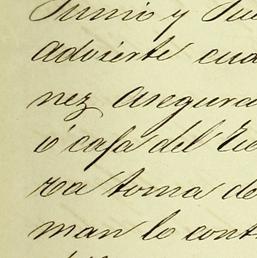 Junio y Ju
advierte cua
nez asegura
ó casa del
ra toma de
man lo cont